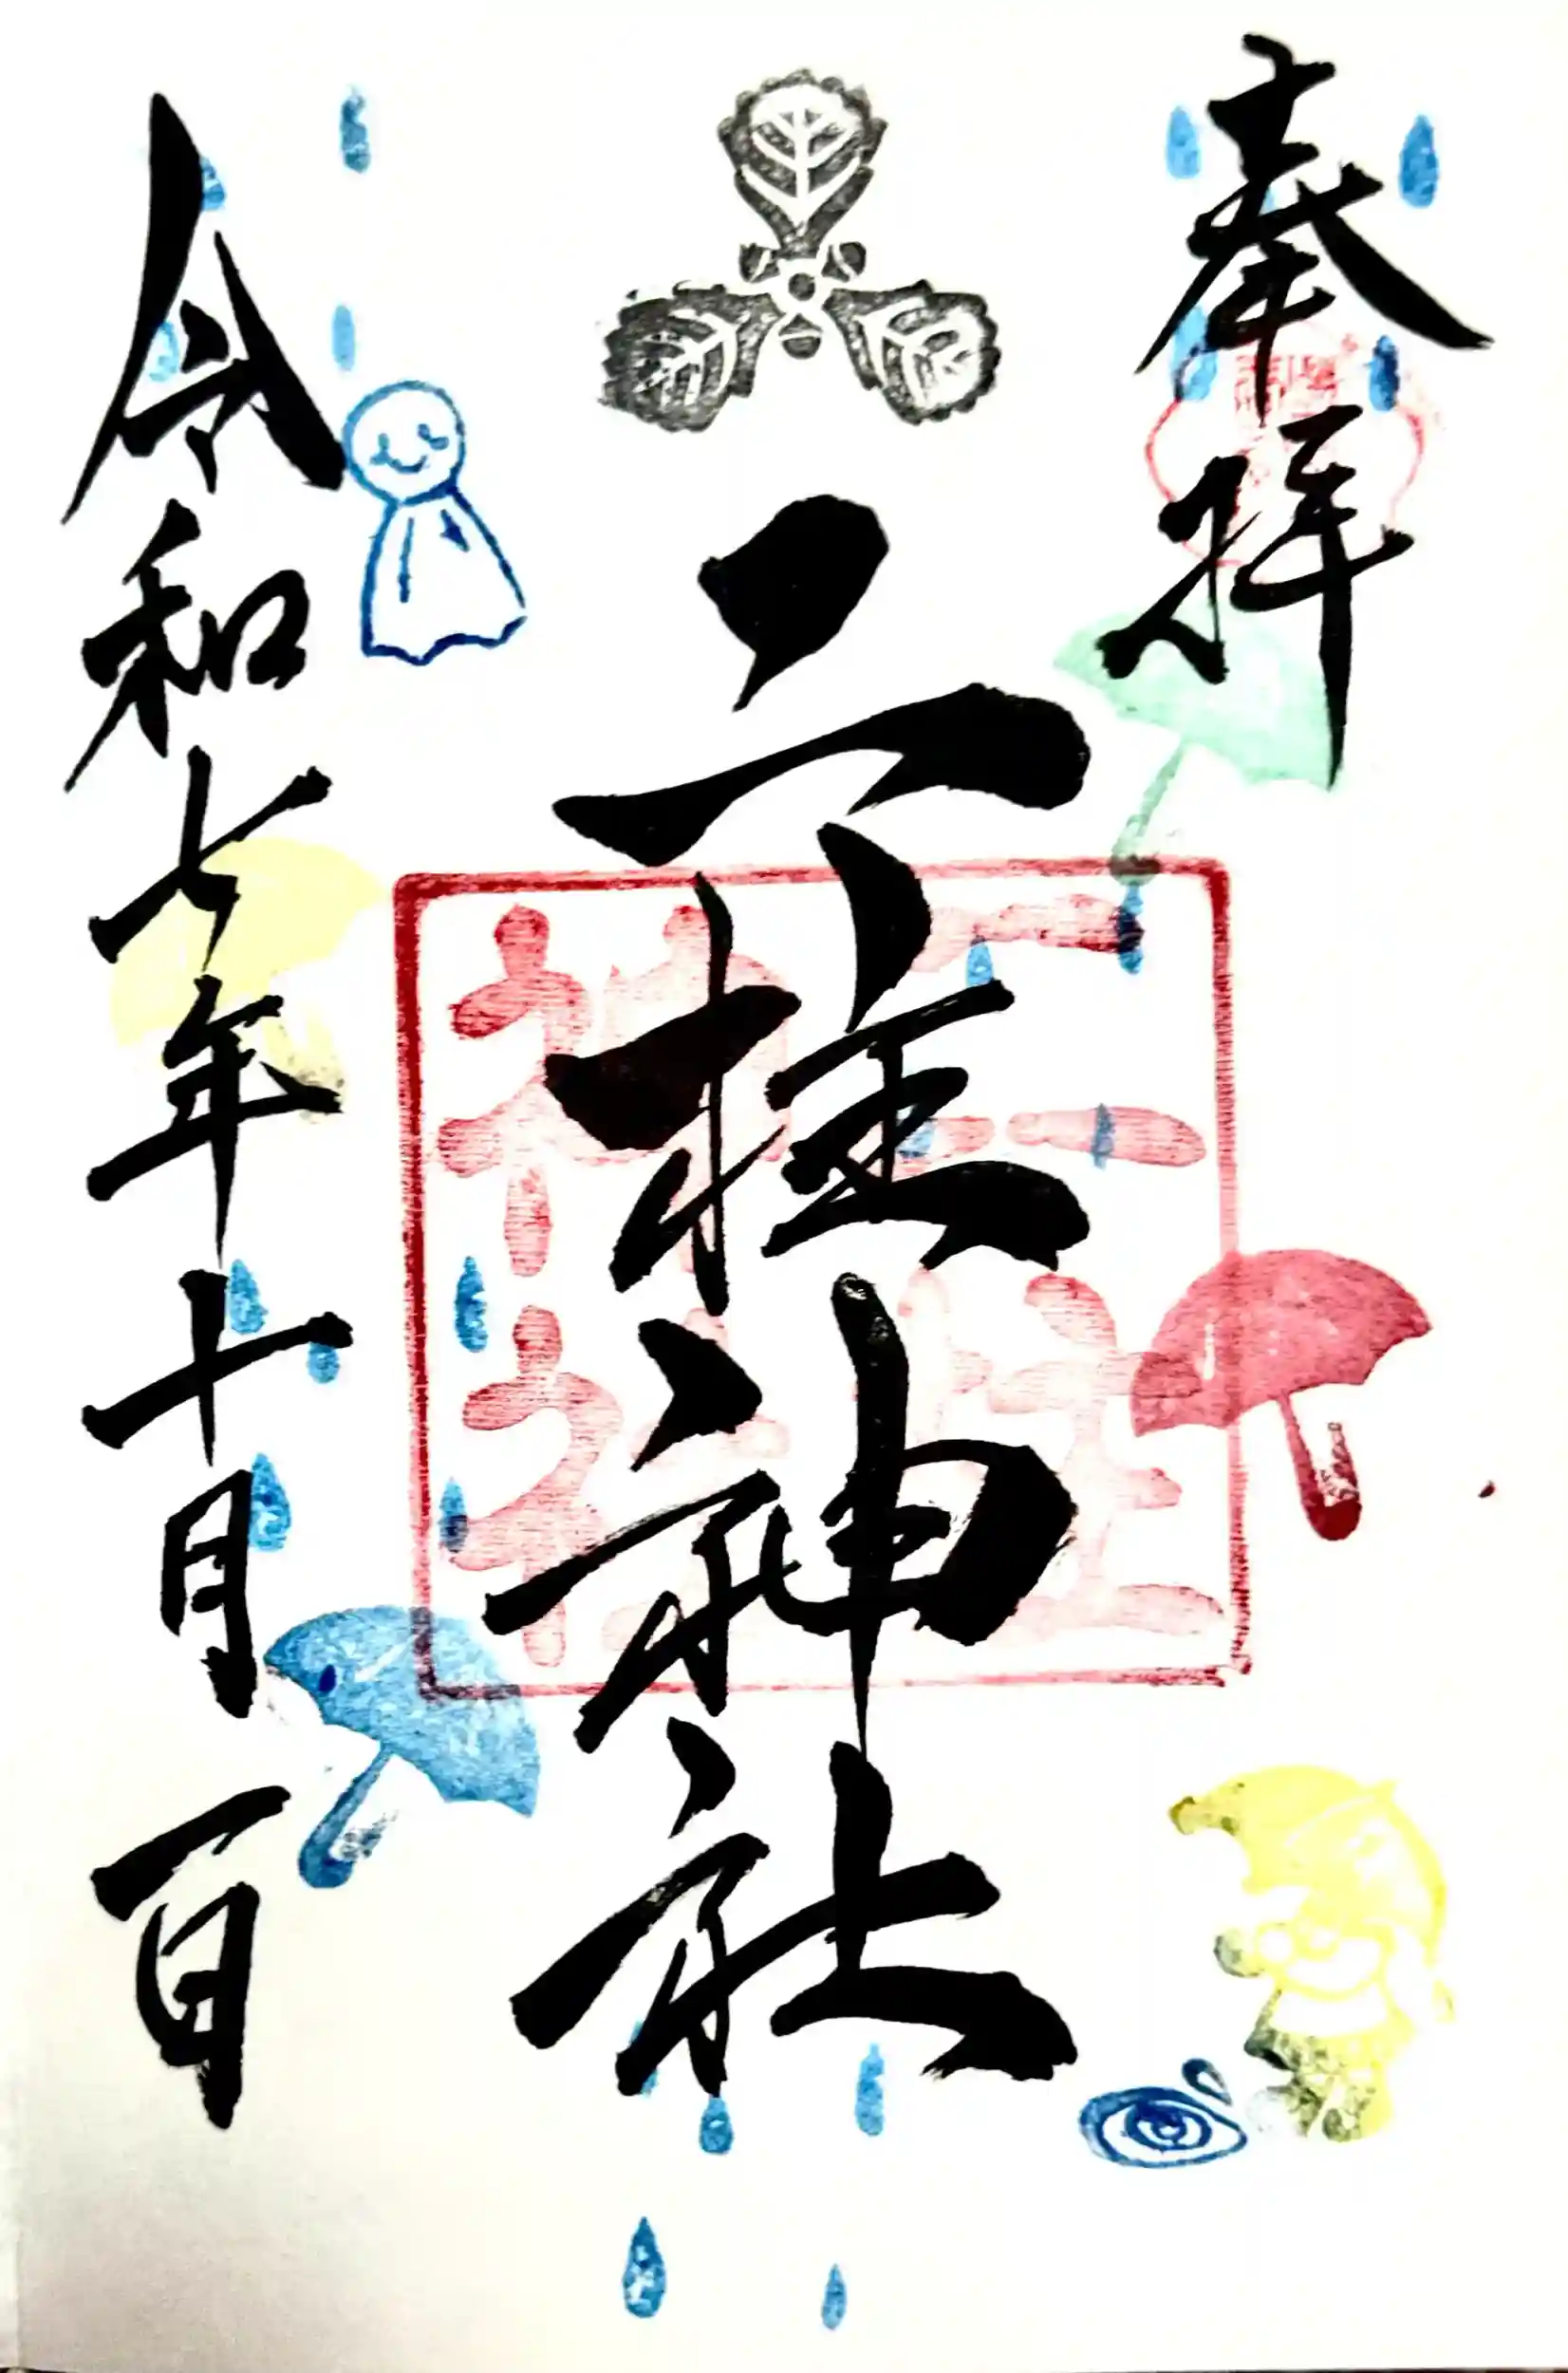 奉拝
二柱神社
二柱
神社
令和七年十月一日